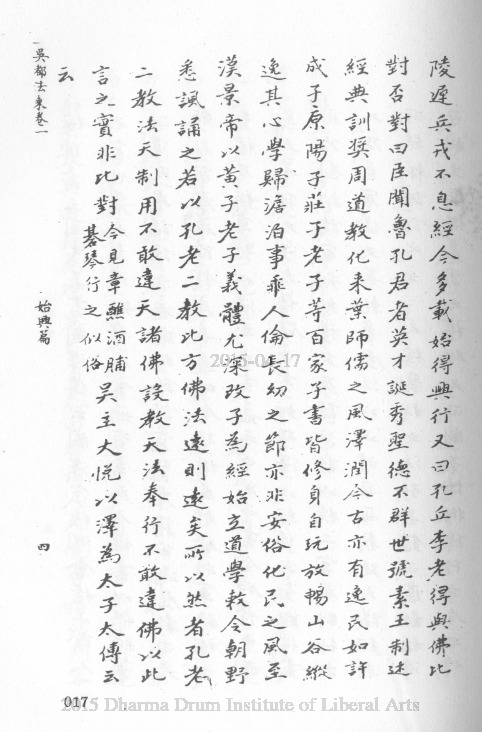 陵遲兵戎不息經今多載始得興行又曰孔丘李老得與佛比
對否對曰臣聞魯孔君者英才誕秀聖德不群世號素王制述
經典訓獎周道教化來葉師儒之風澤潤今古亦有逸民如許
成子原陽子莊子老子等百家子書皆修身自玩放暢山谷縱
逸其心學歸澹泊事乖人倫長幼之節亦非安俗化民之風至
漢景帝以黃子老子義體尤深改子為經始立道學敕令朝野
悉諷誦之若以孔老二教比方佛法遠則遠矣所以然者孔老
二教法天制用不敢違天諸佛設教天法奉行不敢違佛以此
言之實非比對今見章醮酒脯棊琴行之似俗吳主大悅以澤為太子太傅云
云
吳都法乘卷一
始興篇
四
017
2015-04-17
2015 Dharma Drum Institute of Liberal Arts